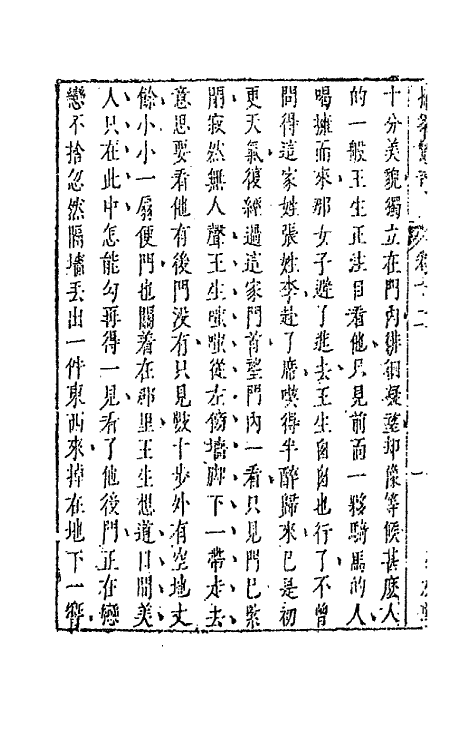 十分美貌獨立在門內徘徊凝望却像等候甚麼人
的一般王生正注目看他只見前面一夥騎馬的人
喝擁而來那女子避了進去王生匆匆也行了不曾
問得這家姓張姓李赴了席喫得半醉歸來已是初
更天氣復經過這家門首望門內一看只見門已緊
閉寂然無人聲王生嗤嗤從左傍墻脚下一帶走去
意思要看他有後門没有只見數十步外有空地丈
餘小小一扇便門也關着在那里王生想道日間美
人只在此中怎能勾再得一見看了他後門正在戀
戀不捨忽然隔墻丢出一件東西來掉在地下一響